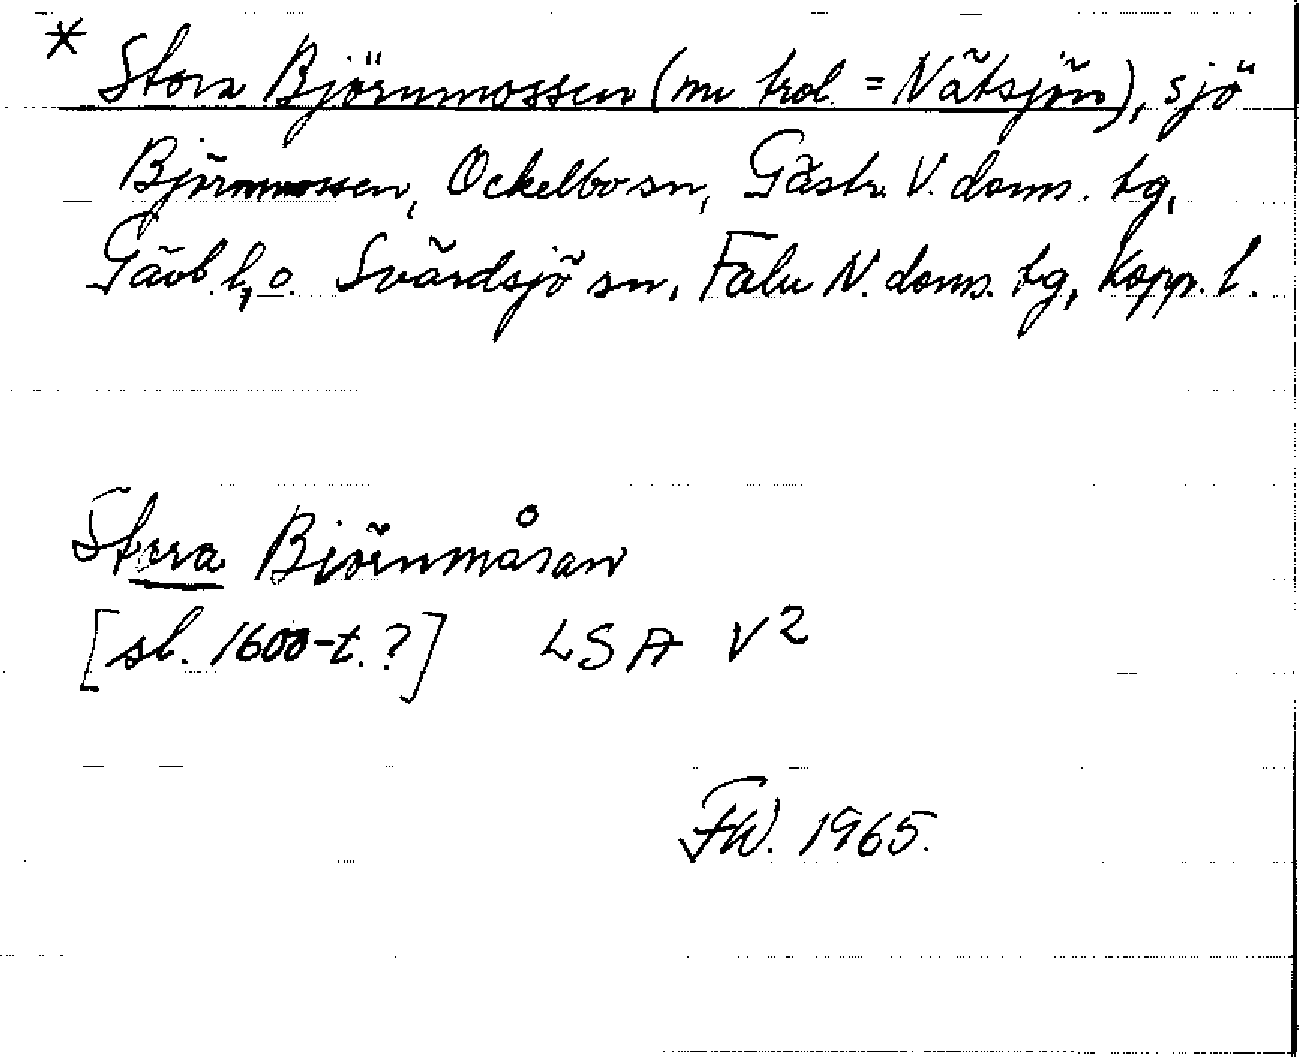 * Stora Björnmossen (nu trol. = Nätsjön), sjö
Björnmossen, Ockelbo sn, Gästr. V. doms. tg,
Gävl. l, o. Svärdsjö sn, Falu N. doms. tg, Kopp. l.
Stora Biörnmåsan
[sl. 1600-t.?] LSA V2
FW. 1965.